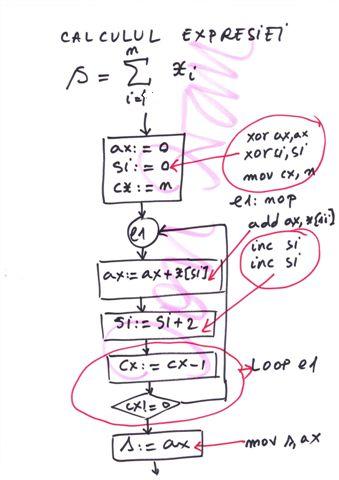 CALCULUL EXPRESIEI
s = ∑ xi
n
i=1
ax:=0
si:=0
cx:=n
xor ax,ax
xor si,si
mov cx,n
e1: nop
e1
add ax,x[si]
ax:=ax+x[si]
inc si
inc si
si:=si+2
cx:=cx-1
LOOP e1
cx!=0
s:=ax
mov s,ax